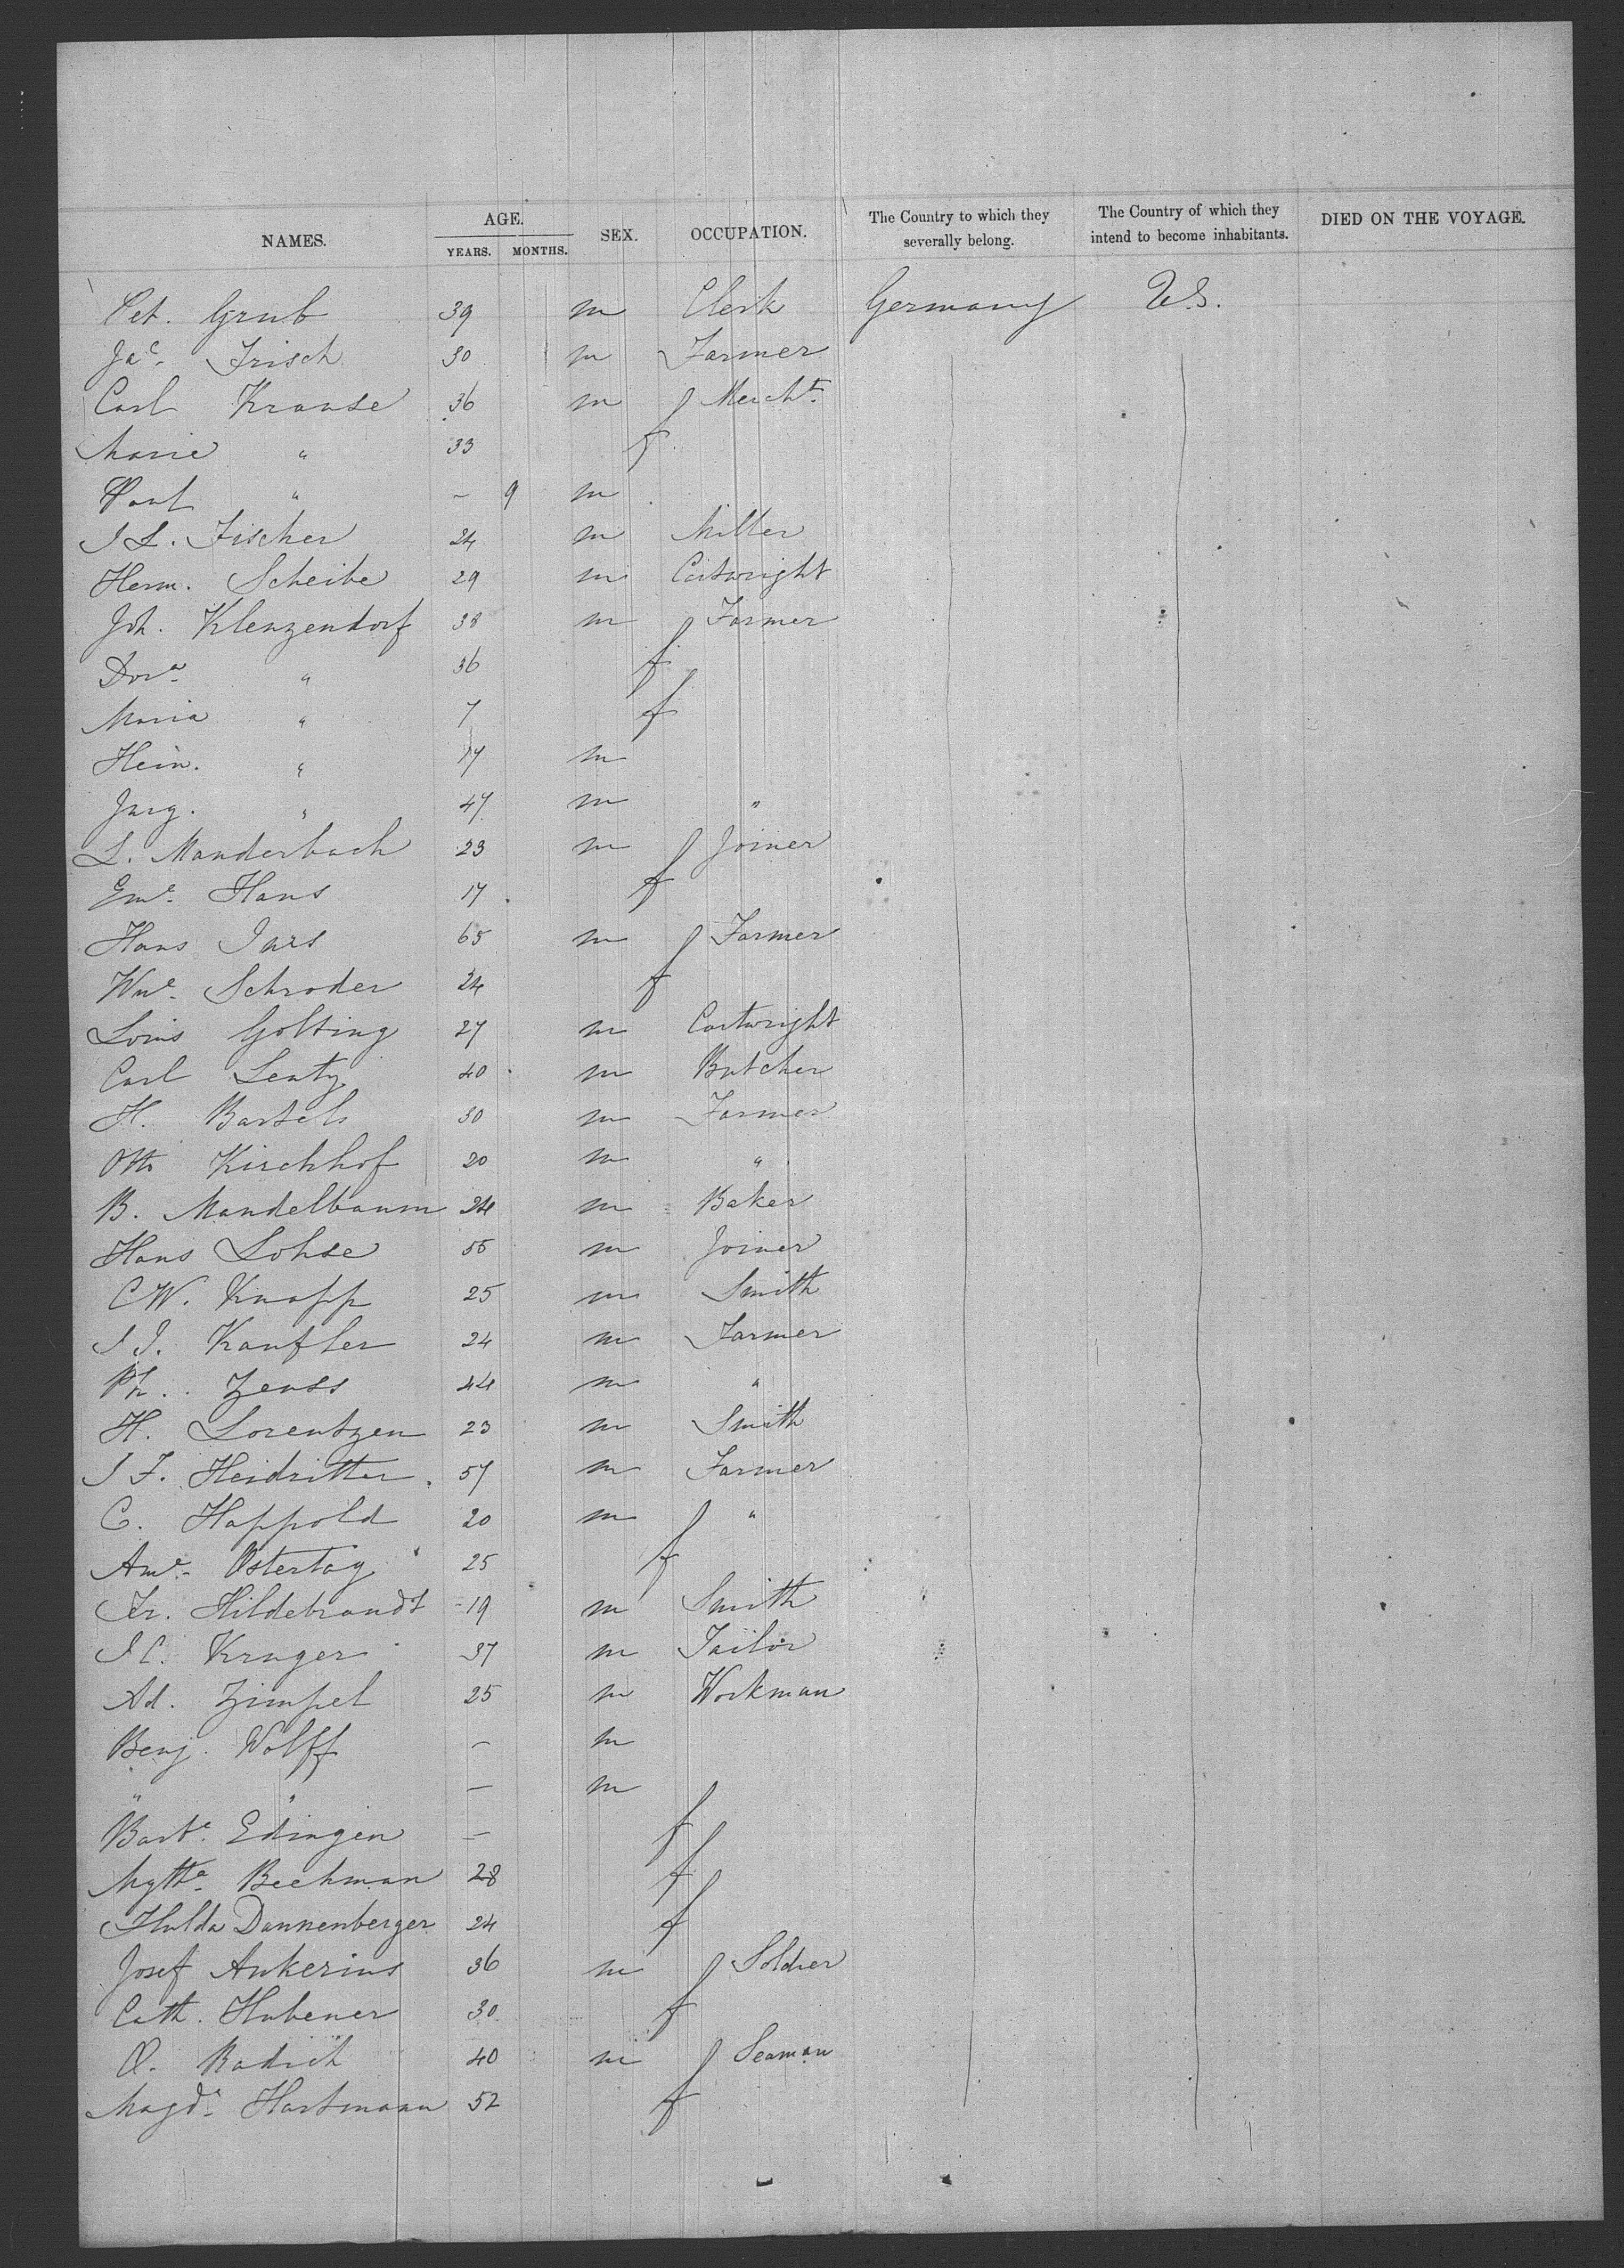 NAMES. AGE. YEARS. MONTHS. SEX. OCCUPATION. The Country to which they severally belong. The Country of which they intend to become inhabitants. DIED ON THE VOYAGE.
Pet. Grub 39 m Clerk Germany U.S.
Jac. Frisch 30 m Farmer
Carl Krause 36 m Mercht.
Marie " 33 f
Paul " - 9 m
J L. Fischer 24 m Miller
Herm. Scheibe 29 m Cartwright
Joh. Klenzendorf 38 m Farmer
Dora " 36 f
Maria " 7 f
Hein. " 17 m
Jurg. " 47 m "
L. Manderbach 23 m Joiner
Eme. Hans 17 f
Hans Jurs 65 m Farmer
Wne. Schroder 24 f
Louis Golting 27 m Cartwright
Carl Lentz 40 m Butcher
H. Bartels 30 m Farmer
Otto Kirchhof 20 m "
B. Mandelbaum 24 m Baker
Hans Lohse 55 m Joiner
C W. Knapp 25 m Smith
J J. Kaufler 24 m Farmer
Ph. Zeuss 44 m "
H. Lorentzen 23 m Smith
J F. Heidritter 57 m Farmer
C. Happold 20 m "
Ame. Ostertag 25 f
Fr. Hildebrandt 19 m Smith
J C. Kruger 37 m Tailor
Ad. Zimpel 25 m Workman
Benj. Wolff - m
" " - m
Barbe. Edingen - f
Mgtta. Beckman 28 f
Hulda Dannenberger 24 f
Josef Ankerius 36 m Soldier
Cath. Hubener 30 f
O. Radich 40 m Seaman
Magda. Hartmann 52 f